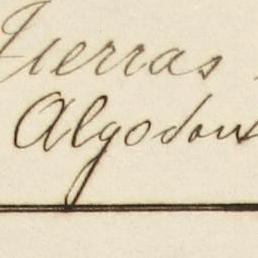 Tierras
Algodon